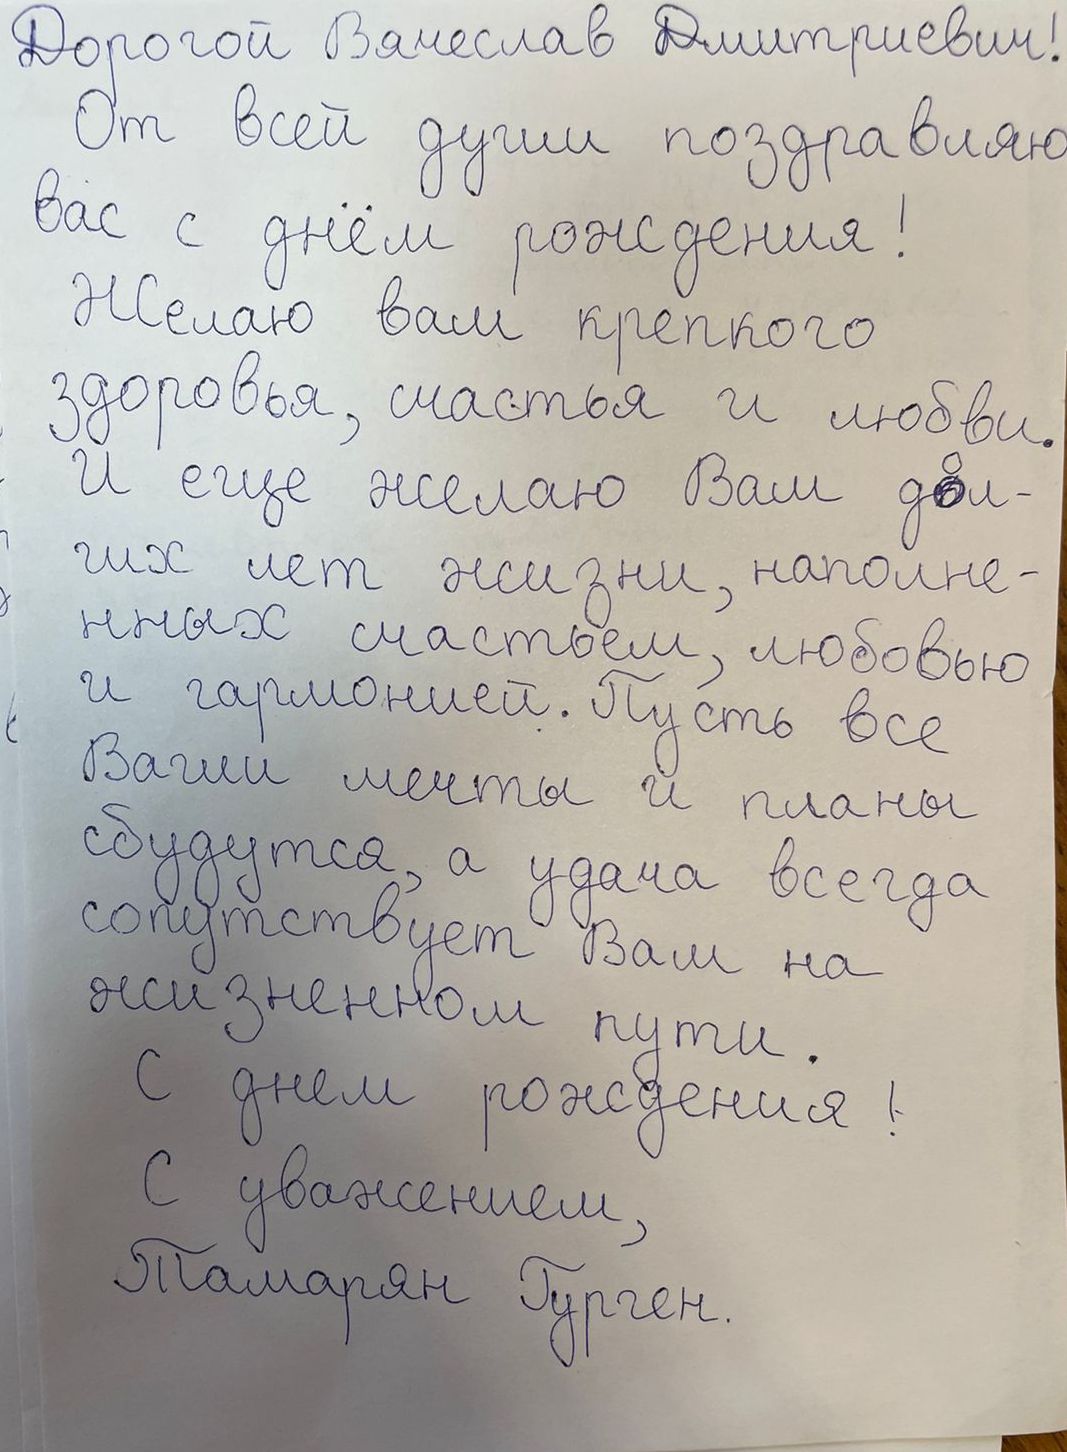 Дорогой Вячеслав Дмитриевич!
От всей души поздравляю
вас с днём рождения!
Желаю вам крепкого
здоровья, счастья и любви.
И еще желаю Вам дол-
гих лет жизни, наполне-
нных счастьем, любовью
и гармонией. Пусть все
Ваши мечты и планы
сбудутся, а удача всегда
сопутствует Вам на
жизненном пути.
С днем рождения!
С уважением,
Тамарян Гурген.